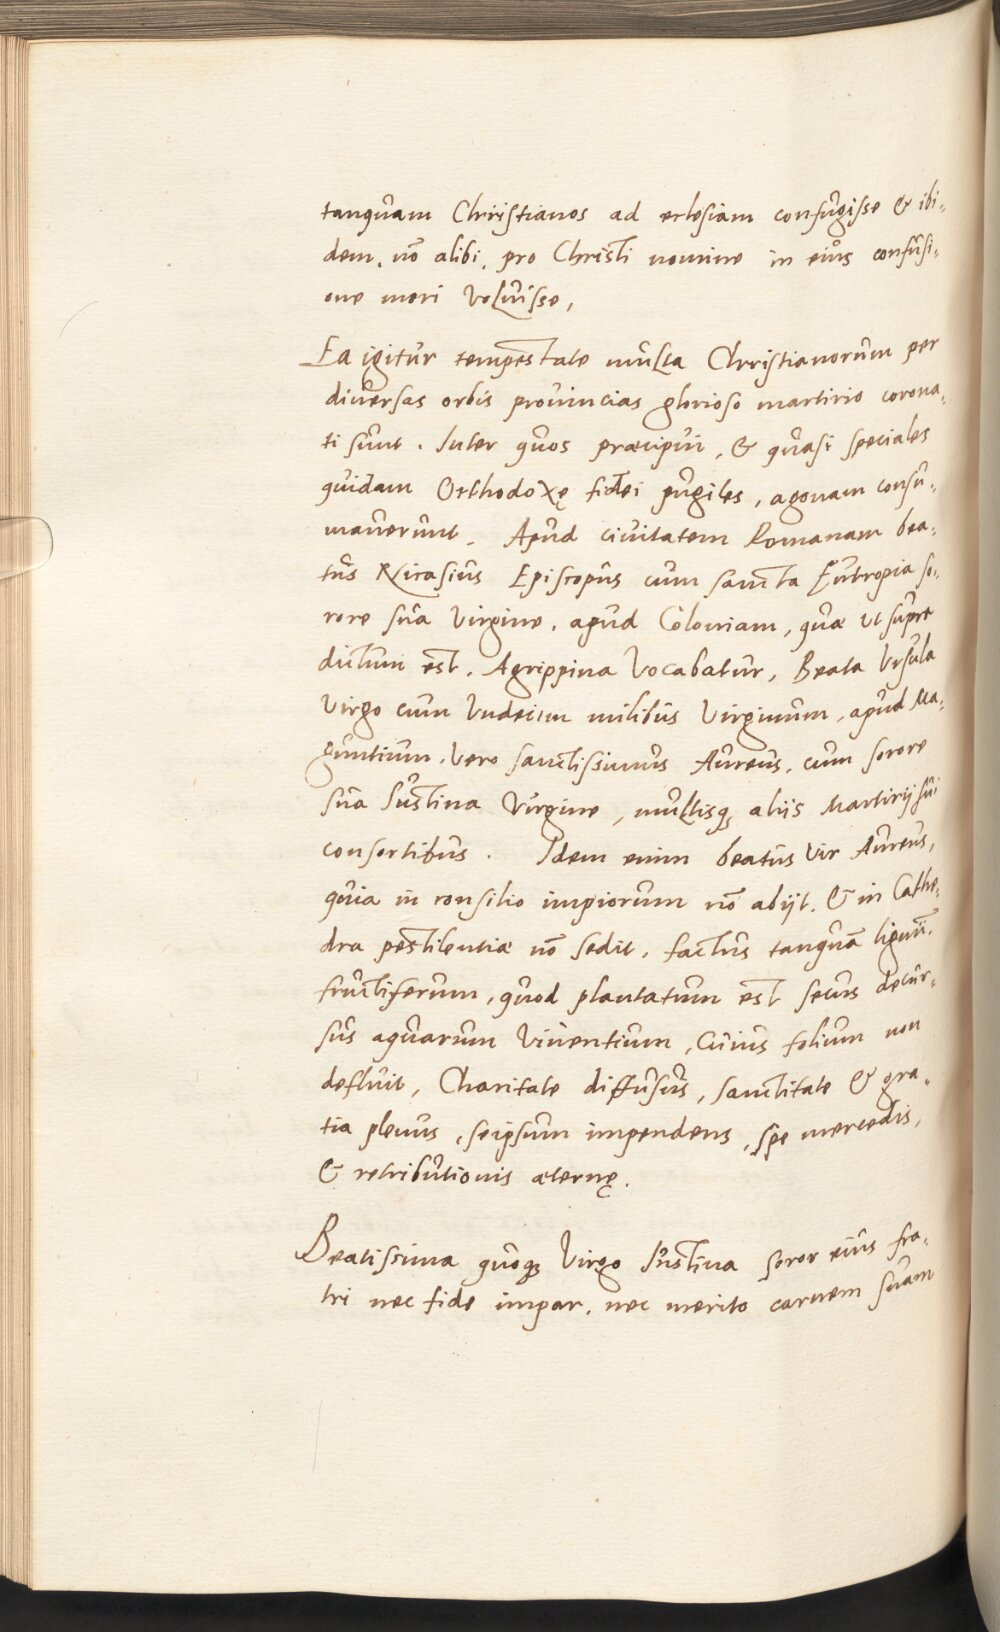 tanquam Christianos ad eclesiam confugisse & ibi-
dem, nõ alibi, pro Christi nomine in eius confusi-
one mori voluisse,
Ea igitur tempestate multa Christianorum per
diuersas orbis prouincias glorioso martirio corona-
ti sunt. Inter quos præcipui, & quasi speciales
quidam Orthodoxę fidei pugiles, agonam consu-
mauerunt. Apud ciuitatem Romanam bea-
tus Nicasius Episcopus cum sancta Eutropia so-
rore sua virgine, apud Coloniam, quæ ut supra
dictum est, Agrippina vocabatur, Beata Vrsula
virgo cum vndecim milibus virginum, apud Ma-
guntium, vero sanctissimus Aureus, cum sorore
sua Iustina virgine, multisq, alijs Martirij sui
consortibus. Idem enim beatus vir Aureus,
quia in consilio impiorum nõ abijt, & in Cathe-
dra pestilentiæ nõ sedit, factus tanquã lignũ
fructiferum, quod plantatum est secus decur-
sus aquarum viuentium, cuius folium non
defluit, Charitate diffusus, sanctitate & gra-
tia plenus, seipsum impendens, spe mercedis,
& retributionis æternę.
Beatissima quoq, Virgo Iustina soror eius fra-
tri nec fide impar, nec merito carnem suam